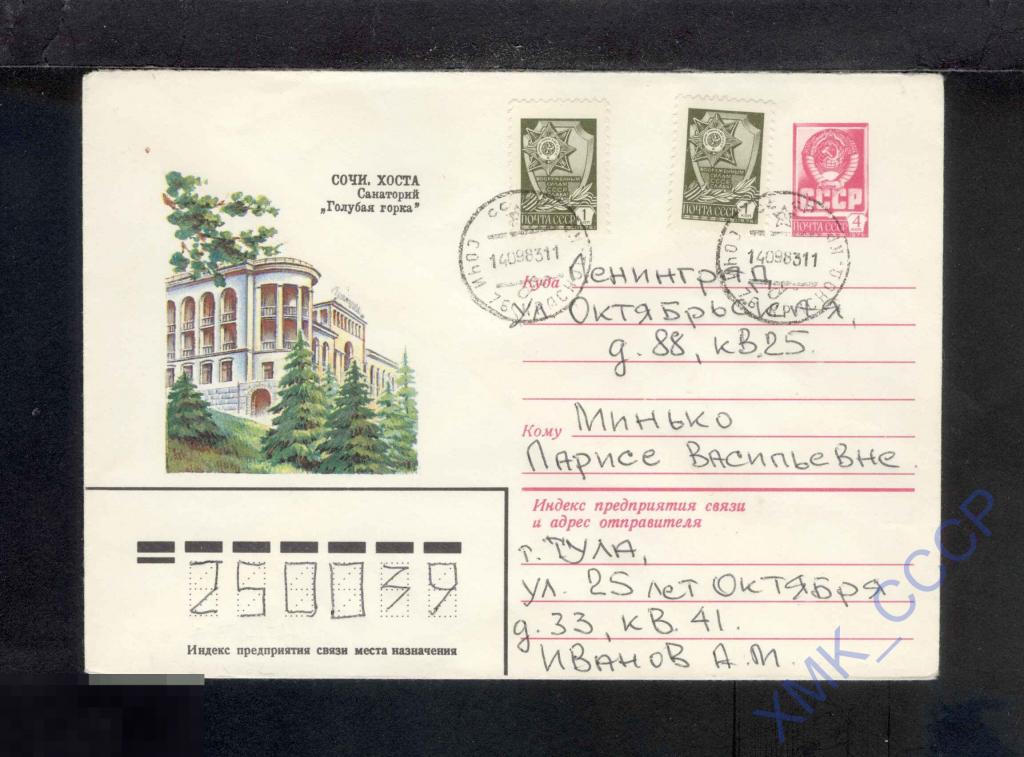 СОЧИ. ХОСТА
Санаторий
„Голубая горка"
ВООРУЖЕННЫЕ
СИЛЫ
СССР
ПОЧТА СССР 1
ПОЧТА СССР 1
СССР
ПОЧТА СССР 4
СОЧИ
14098311
СОЧИ
14098311
Куда Ленинград,
ул Октябрьская,
д. 88, кв. 25.
Кому Минько
Ларисе Васильевне.
Индекс предприятия связи
и адрес отправителя
г. Тула,
ул. 25 лет Октября
д. 33, кв. 41.
Иванов А.М.
250039
Индекс предприятия связи места назначения
ХМК_СССР